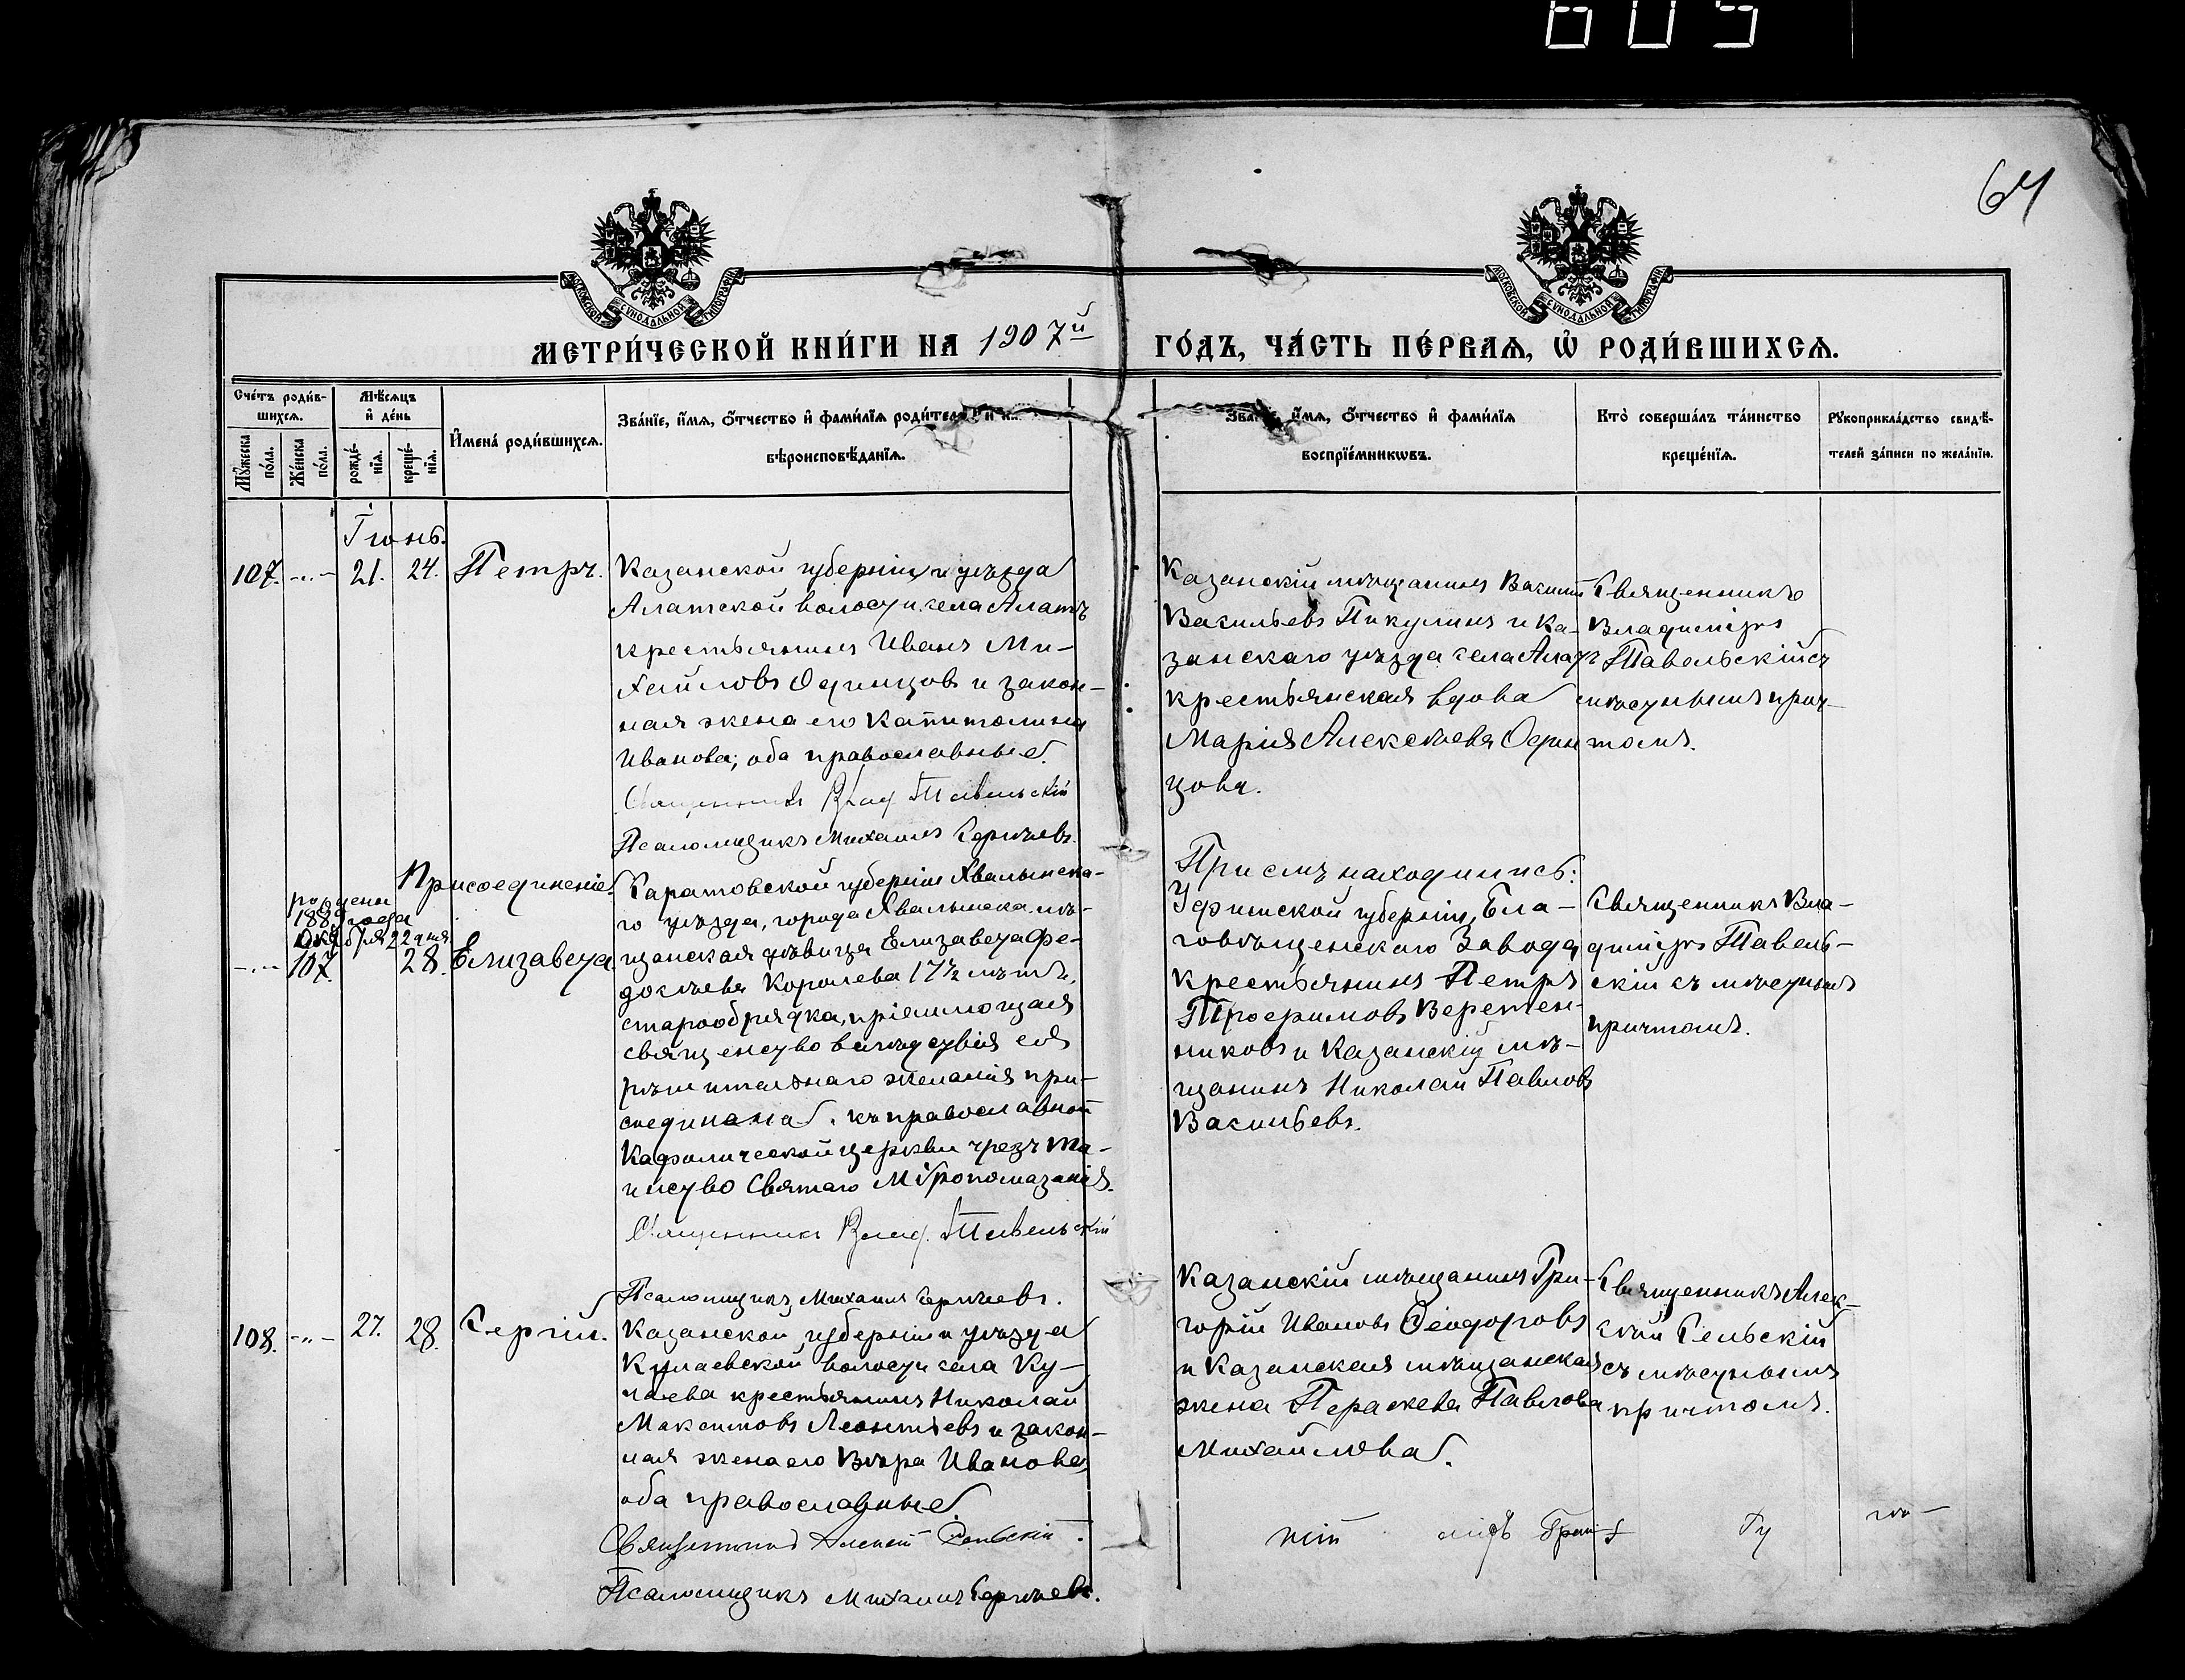 64
МОСКОВСКОЙ СУНОДАЛЬНОЙ ТИПОГРАФІИ
МОСКОВСКОЙ СУНОДАЛЬНОЙ ТИПОГРАФІИ
МЕТРИ́ЧЕСКОЙ КНИ́ГИ НА 1907й ГО́ДЪ, ЧА́СТЬ ПЕ́РВАѦ, Ѡ РОДИ́ВШИХСѦ.
Сче́тъ роди́в-
шихсѧ.
Мꙋ́жеска
по́ла.
Же́нска
по́ла.
Мѣ́сѧцъ
и҆ де́нь
рожде́-
нїѧ.
креще́-
нїѧ.
И҆мена̀ роди́вшихсѧ.
Зва́нїе, и҆́мѧ, ѻ҆́тчество и҆ фами́лїѧ роди́телей и҆
вѣроисповѣ́данїѧ.
Зва́нїе, и҆́мѧ, ѻ҆́тчество и҆ фами́лїѧ
воспрїе́мникѡвъ.
Кто̀ соверша́лъ та́инство
креще́нїѧ.
Рꙋкоприкла́дство свидѣ́-
телей за́писи по жела́нїю.
Іюнь.
107. -„- 21. 24. Петръ.
Казанской губерніи и уѣзда
Алатской волости села Алатъ
крестьянинъ Иванъ Ми-
хайловъ Одинцовъ и закон-
ная жена его Капитолина
Иванова; оба православные.
Священникъ Влад. Павельскій
Псаломщикъ Михаилъ Сергѣевъ.
Казанскій мѣщанинъ Василій
Васильевъ Пикулинъ и Ка-
занскаго уѣзда села Алатъ
крестьянская вдова
Марія Алексѣева Один
цова.
Священникъ
Владиміръ
Павельскій съ
мѣстнымъ прич-
томъ.
Присоединеніе.
рождена
1889 года
Октября 22 дня
-„- 107. 28. Елизавета
Саратовской губерніи Хвалынска-
го уѣзда, города Хвалынска мѣ-
щанская дѣвица Елизавета Фе-
досѣева Королева 17½ лѣтъ,
старообрядка, пріемлющая
священство вслѣдствіе ея
рѣшительнаго желанія при-
соединена къ православной
Каѳолической церкви чрезъ та-
инство Святаго Мѵропомазанія.
Священникъ Влад. Павельскій
Псаломщикъ Михаилъ Сергѣевъ.
При семъ находились:
Уфимской губерніи, Бла-
говѣщенскаго Завода
крестьянинъ Петръ
Трофимовъ Веретен-
никовъ и Казанскій мѣ-
щанинъ Николай Павловъ
Васильевъ.
Священникъ Вла-
диміръ Павель-
скій съ мѣстнымъ
причтомъ.
108. -„- 27. 28. Сергій.
Казанской губерніи и уѣзда
Кулаевской волости села Ку-
лаева крестьянинъ Николай
Максимовъ Леонтьевъ и закон-
ная жена его Вѣра Иванова,
оба православные.
Священникъ Алексій Сельскій.
Псаломщикъ Михаилъ Сергѣевъ.
Казанскій мѣщанинъ Гри-
горій Ивановъ Ѳеодоровъ
и Казанская мѣщанская
жена Параскева Павлова
Михайлова.
Священникъ Алек-
сѣй Сельскій
съ мѣстнымъ
причтомъ.